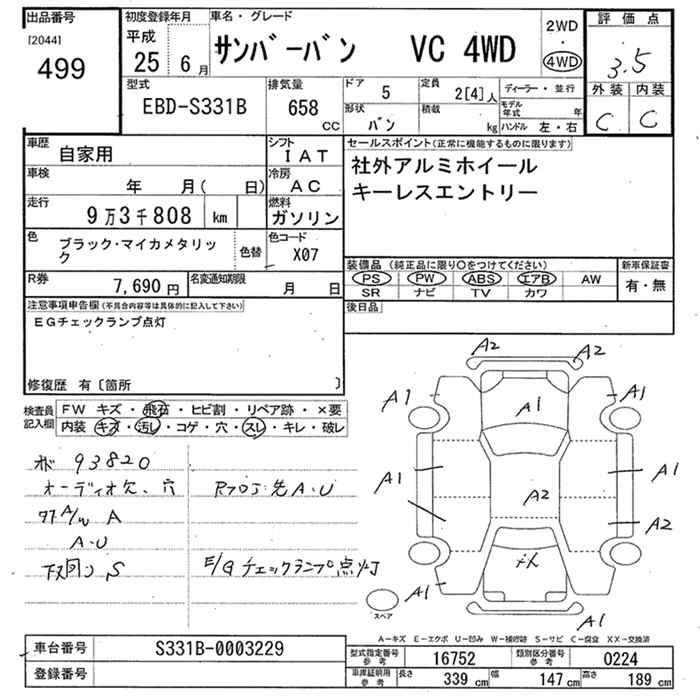 出品番号
[2044]
499
初度登録年月
平成
25 6 月
車名・グレード
サンバーバン VC 4WD
2WD
・
4WD
評価点
3.5
外装 内装
C C
型式
EBD-S331B
排気量
658
CC
ドア 5
定員 2[4]人
形状 バン
積載 kg
ディーラー・並行
モデル年式 年
ハンドル 左・右
車歴
自家用
シフト
IAT
車検
年 月( 日)
冷房
AC
走行
9万3千808 km
燃料
ガソリン
色
ブラック・マイカメタリッ
ク
色替
色コード
X07
R券
7,690円
名変通知期限
月 日
セールスポイント(正常に機能するものに限ります)
社外アルミホイール
キーレスエントリー
装備品 (純正品に限り○をつけてください)
PS PW ABS エアB AW
SR ナビ TV カワ
新車保証書
有・無
後日品
注意事項申告欄(不具合内容等は具体的に記入して下さい)
EGチェックランプ点灯
修復歴 有〔箇所 〕
検査員
記入欄
FW キズ・飛石・ヒビ割・リペア跡・×要
内装 キズ・汚レ・コゲ・穴・スレ・キレ・破レ
93820
オーディオ欠、穴
A/W A
A・U
S
先A・U
E/Gチェックランプ点灯
A2
A2
A1
A1
A1
A1
A1
A2
A2
A1
A1
スペア
A-キズ E-エクボ U-凹み W-補修跡 S-サビ C-腐食 XX-交換済
車台番号
S331B-0003229
登録番号
型式指定番号
参考
16752
類別区分番号
参考
0224
車庫証明用
参考
長さ 339 cm
幅 147 cm
高さ 189 cm